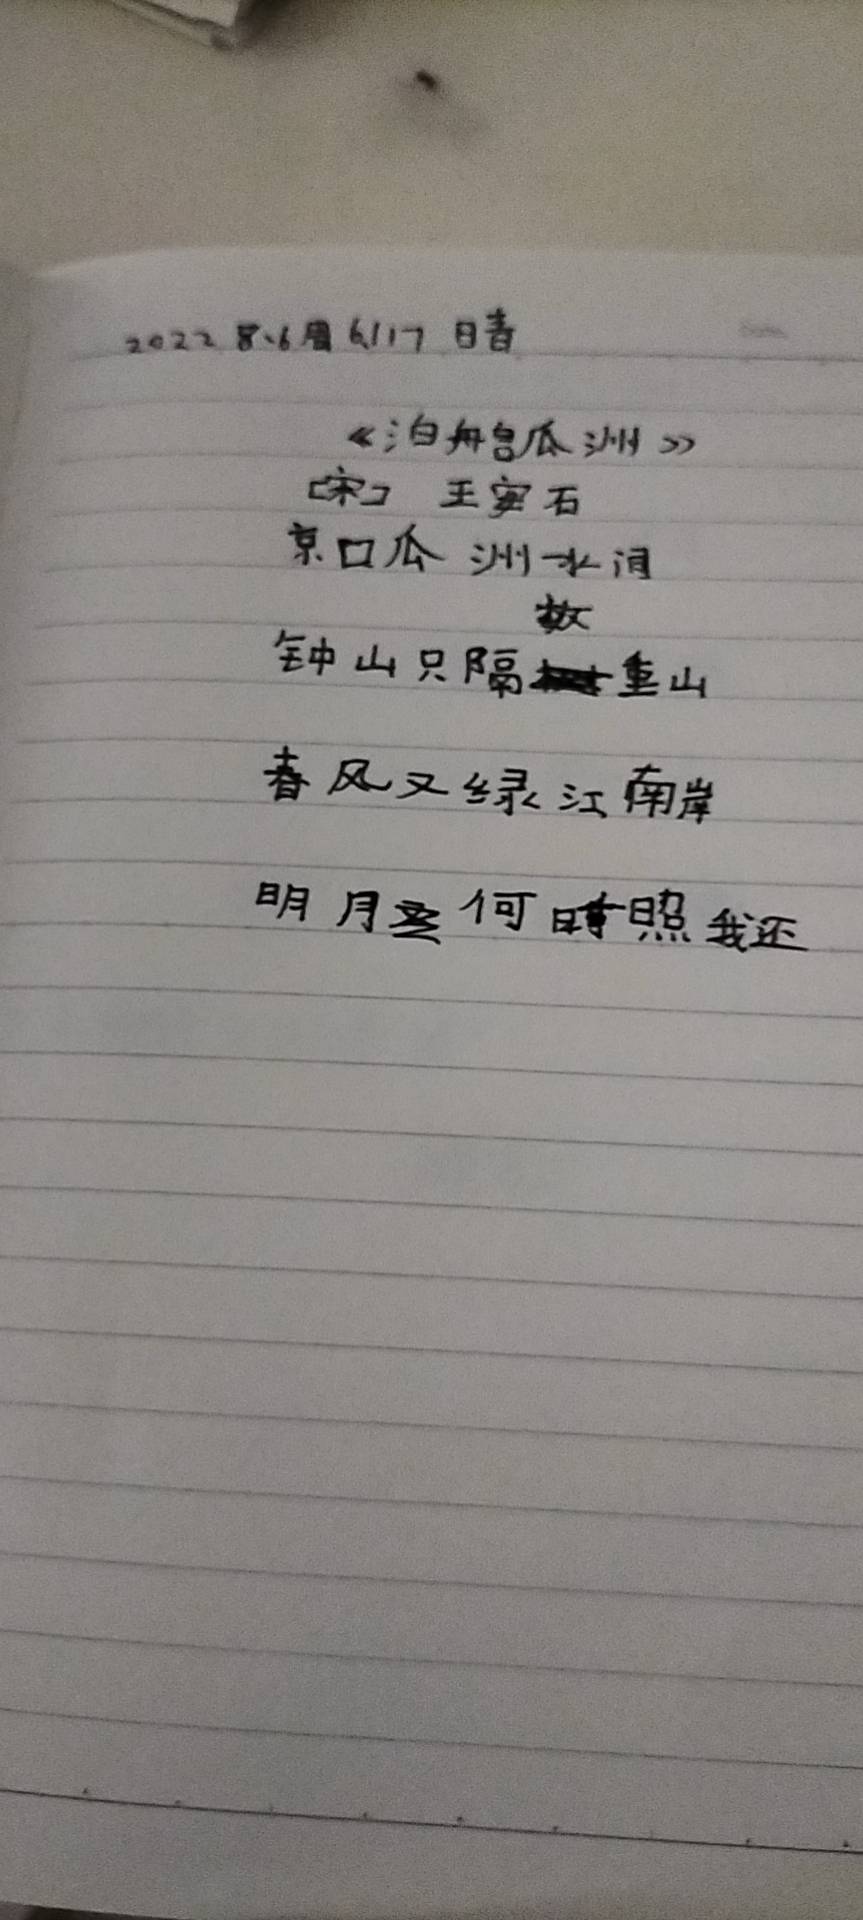 2022 8.6周6 1117 晴
《泊船瓜洲》
[宋] 王安石
京口瓜洲一水间
数
钟山只隔重山
春风又绿江南岸
明月 何时照我还